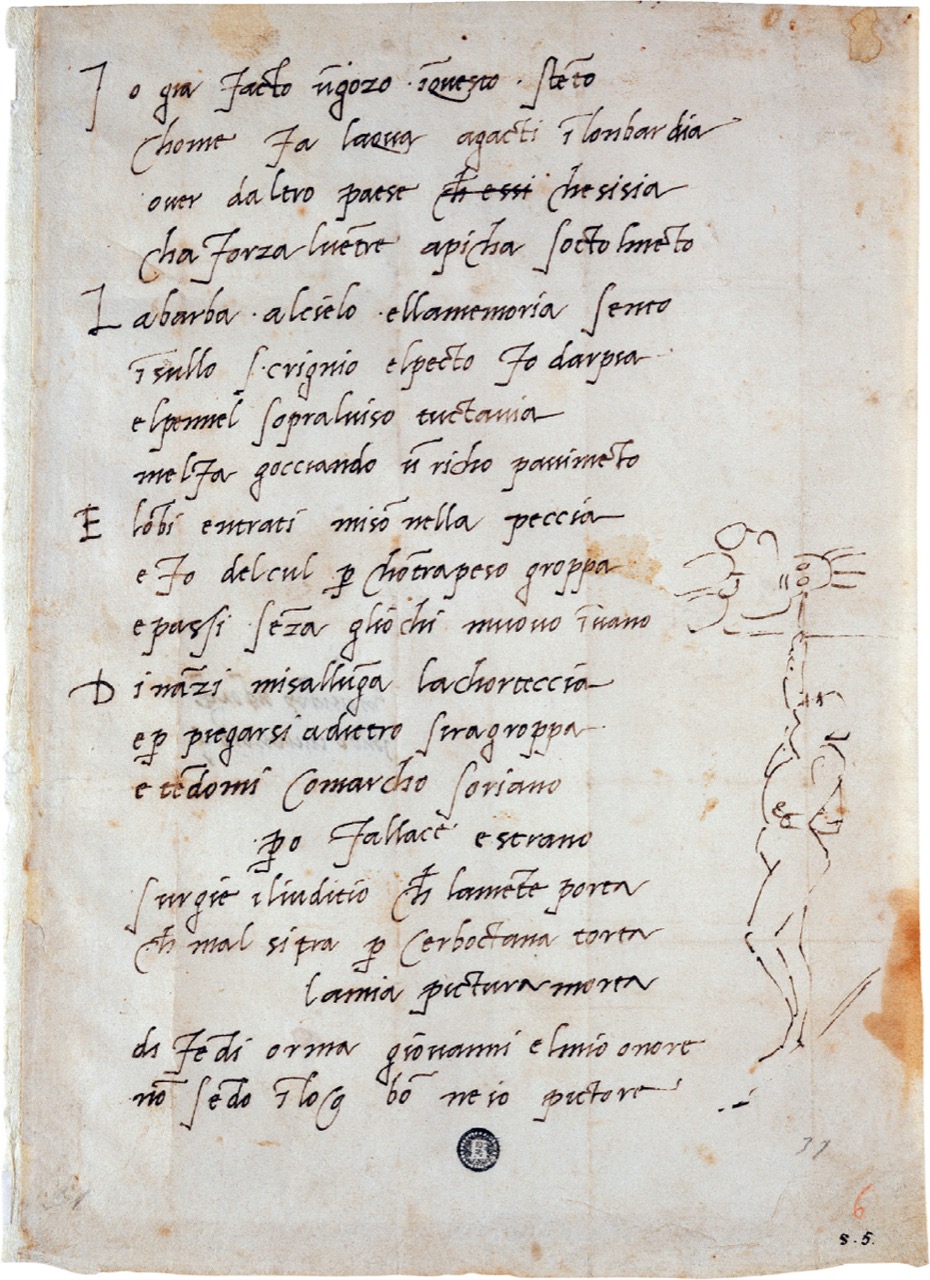 I o gia facto ūgozo īquesto stēto
chome fa laqua agacti īlonbardia
over daltro paese ch̄ essi chesisia
cha forza lvētre apicha socto lmēto
L abarba alcielo ellamemoria sento
īsullo scrignio elpecto fo darpia
elpennel sopralviso tuctavia
melfa gocciando ū richo pavimēto
E lōbi entrati misō nella peccia
e fo delcul p̲ chōtrapeso groppa
epassi sēza gliochi muovo īvano
D ināzi misallūga lachorteccia
ep̲ piegarsi adietro siragroppa
e tēdomi comarcho soriano
p̲o fallace e strano
surgie iliuditio ch̄ lamēte porta
ch̄ mal sitra p̲ cerboctana torta
lamia pictura morta
di fēdi orma giovanni elmio onore
nō sēdo īlog bō ne io pictore
37
6
8.5.